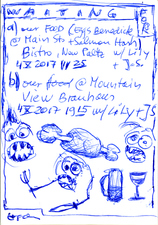 WAITING
FOR
a) our FOOD (Eggs Benedick
@ Main Sto + Salmon Hash)
Bistro, New w/ Lily
4 X 2017 11 25 + J-S.
b) our food @ Mountain
View Brauhaus
4 X 2017 1915 w/ Lily + JS